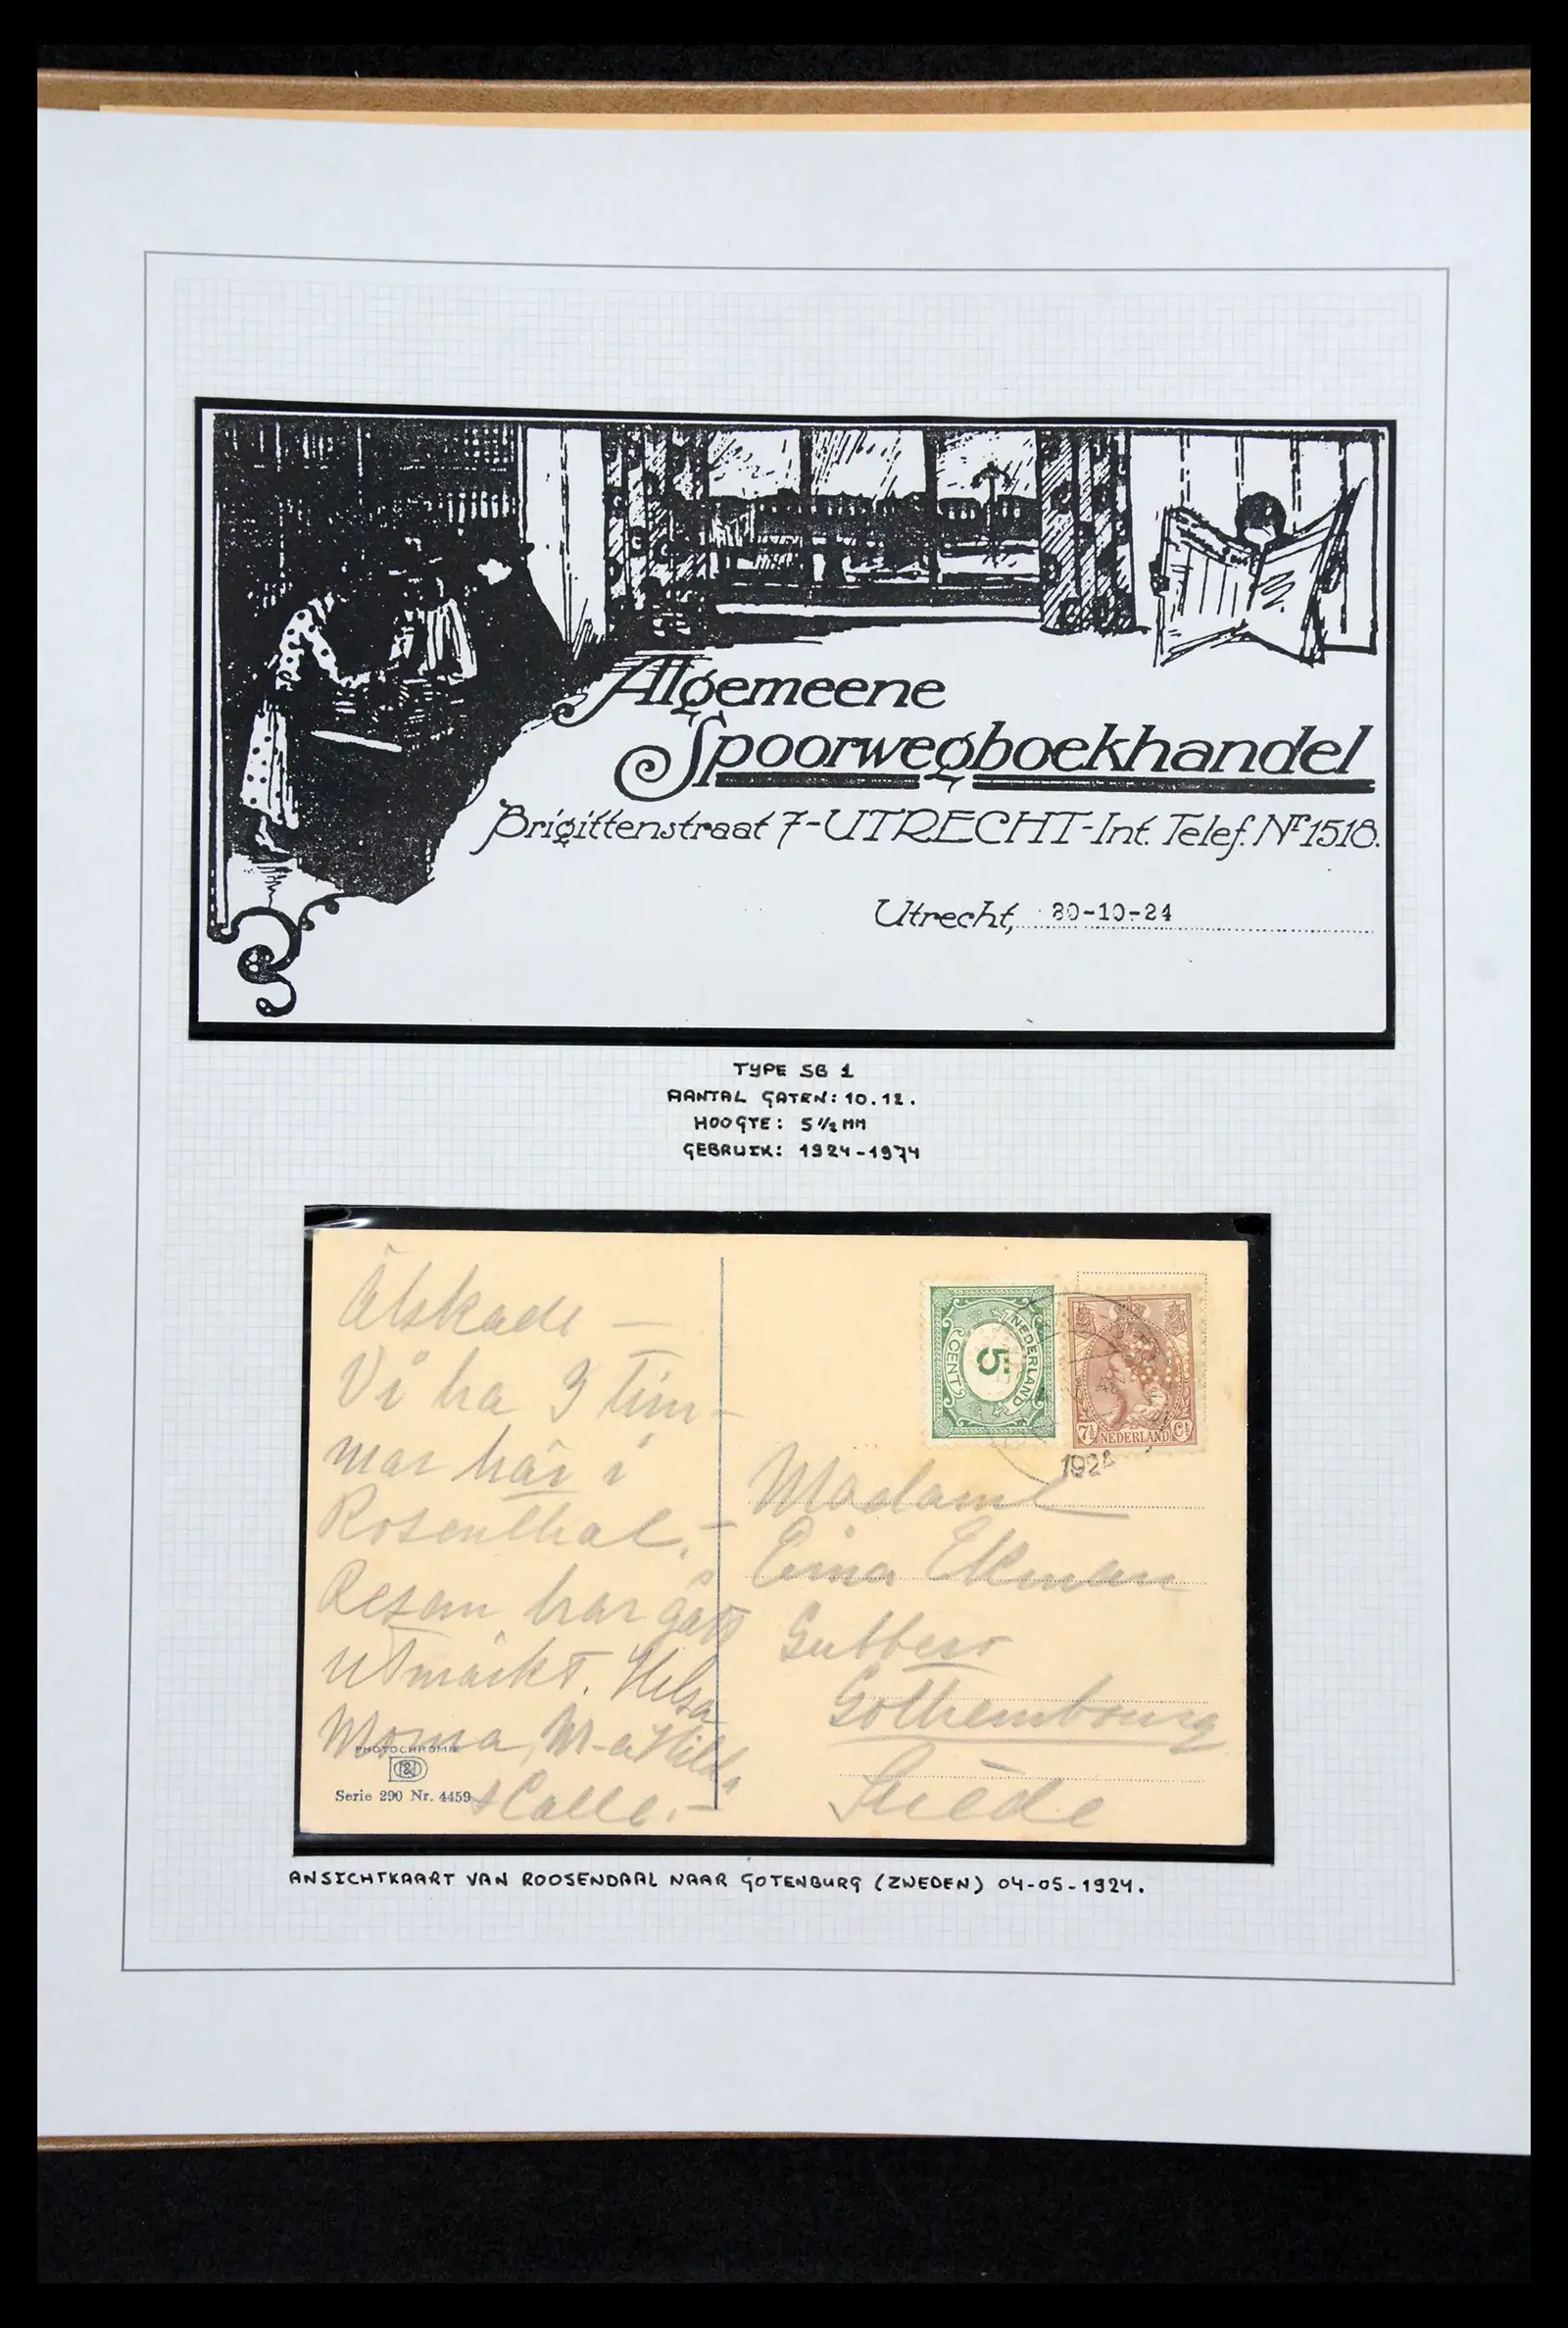 Algemeene
Spoorwegboekhandel
Brigittenstraat 7-UTRECHT-Int. Telef. Nr 1518.
Utrecht, 30-10-24
TYPE SB 1
AANTAL GATEN: 10.12.
HOOGTE: 5 1/2 MM
GEBRUIK: 1924-1974
Älskade —
Vi ha 3 tim-
mar här i
Rosenthal. –
Resan har gått
utmärkt. Helsa
Moma, M-a Hilda
+ Calle. –
PHOTOCHROMIE
Serie 290 Nr. 4459
NEDERLAND
5
CENT
7½ NEDERLAND Ct
1924
Madame
Ekman
Gothembourg
Suède
ANSICHTKAART VAN ROOSENDAAL NAAR GOTENBURG (ZWEDEN) 04-05-1924.